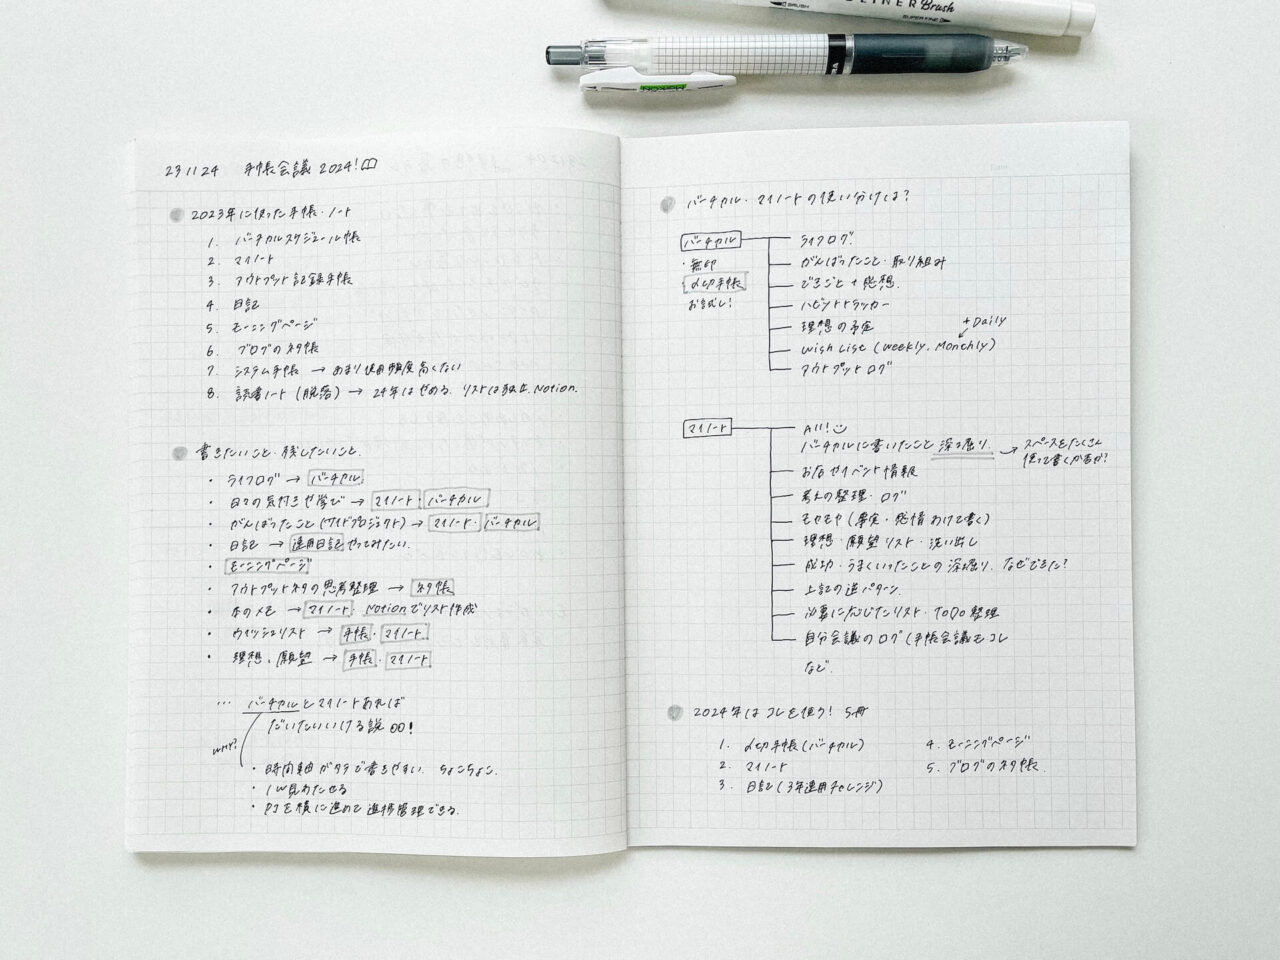 BRUSH
LINER Brush
SUPER FINE
23 11 24 手帳会議 2024!
2023年に使った手帳・ノート
1. バーチカルスケジュール帳
2. マイノート
3. アウトプット記録手帳
4. 日記
5. モーニングページ
6. ブログのネタ帳
7. システム手帳 → あまり使用頻度高くない
8. 読書ノート (脱落) → 24年はやめる. リストは独立. Notion.
書きたいこと・残したいこと.
・ライフログ → バーチカル
・日々の気付きや学び → マイノート・バーチカル
・がんばったこと (サイドプロジェクト) → マイノート・バーチカル
・日記 → 連用日記 やってみたい.
・モーニングページ
・アウトプットネタの思考整理 → ネタ帳
・本のメモ → マイノート・Notionでリスト作成
・ウィッシュリスト → 手帳・マイノート
・理想、願望 → 手帳・マイノート
… バーチカルとマイノートあれば
だいたいいける説!
WHY?
・時間軸がタテで書きやすい. ちょこちょこ.
・1W見わたせる
・PJを横に進めて進捗管理できる.
バーチカル・マイノートの使い分けは?
バーチカル
・無印
・〆切手帳
お試し!
ライフログ.
がんばったこと・取り組み
できごと+感想.
ハビットトラッカー
理想の予定
+Daily
Wish List (Weekly, Monthly)
アウトプットログ
マイノート
All!
バーチカルに書いたこと 深掘り. → スペースをたくさん
使って書くか否か?
お店やイベント情報
考えの整理・ログ
モヤモヤ (事実・感情 わけて書く)
理想・願望リスト・洗い出し
成功・うまくいったことの深掘り. なぜできた?
上記の逆パターン.
必要に応じたリスト・TODO整理
自分会議のログ (手帳会議もコレ
など.
2024年はコレを使う! 5冊
1. 〆切手帳 (バーチカル)
2. マイノート
3. 日記 (3年連用チャレンジ)
4. モーニングページ
5. ブログのネタ帳.